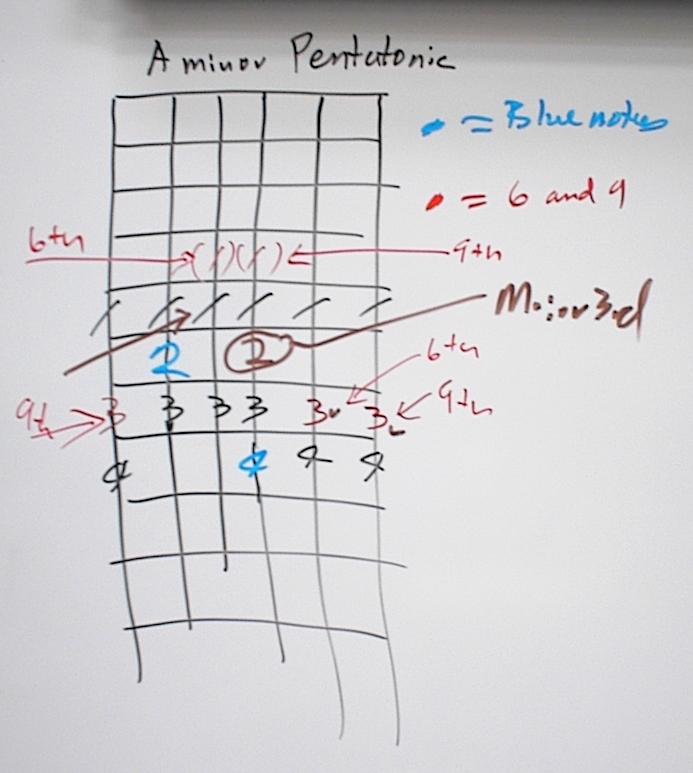 A minor Pentatonic
= Blue notes
= 6 and 9
6th (1)(1) 9th
1 1 1 1 1 1
Major 3rd
2 2
6th
9th 3 3 3 3 3 3 9th
4 4 4 4